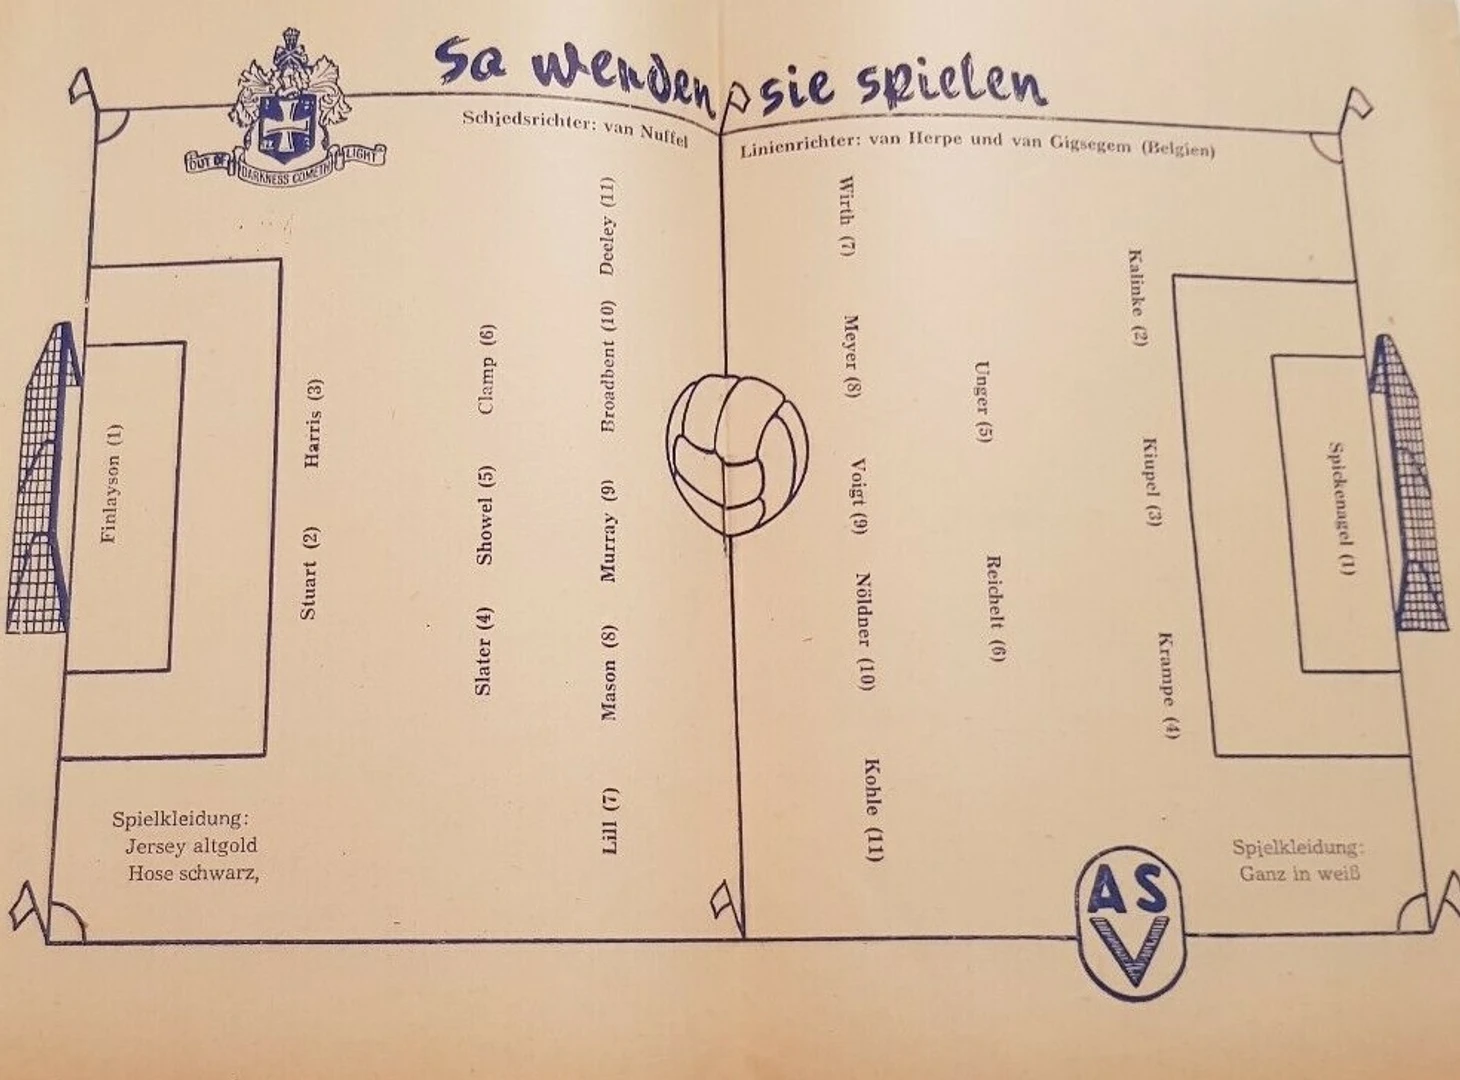 So werden sie spielen
Schiedsrichter: van Nuffel
Linienrichter: van Herpe und van Gigsegem (Belgien)
OUT OF DARKNESS COMETH LIGHT
Finlayson (1)
Harris (3)
Stuart (2)
Clamp (6)
Showel (5)
Slater (4)
Deeley (11)
Broadbent (10)
Murray (9)
Mason (8)
Lill (7)
Wirth (7)
Meyer (8)
Voigt (9)
Nöldner (10)
Kohle (11)
Unger (5)
Reichelt (6)
Kalinke (2)
Kiupel (3)
Krampe (4)
Spickenagel (1)
Spielkleidung:
Jersey altgold
Hose schwarz,
Spielkleidung:
Ganz in weiß
AS
V